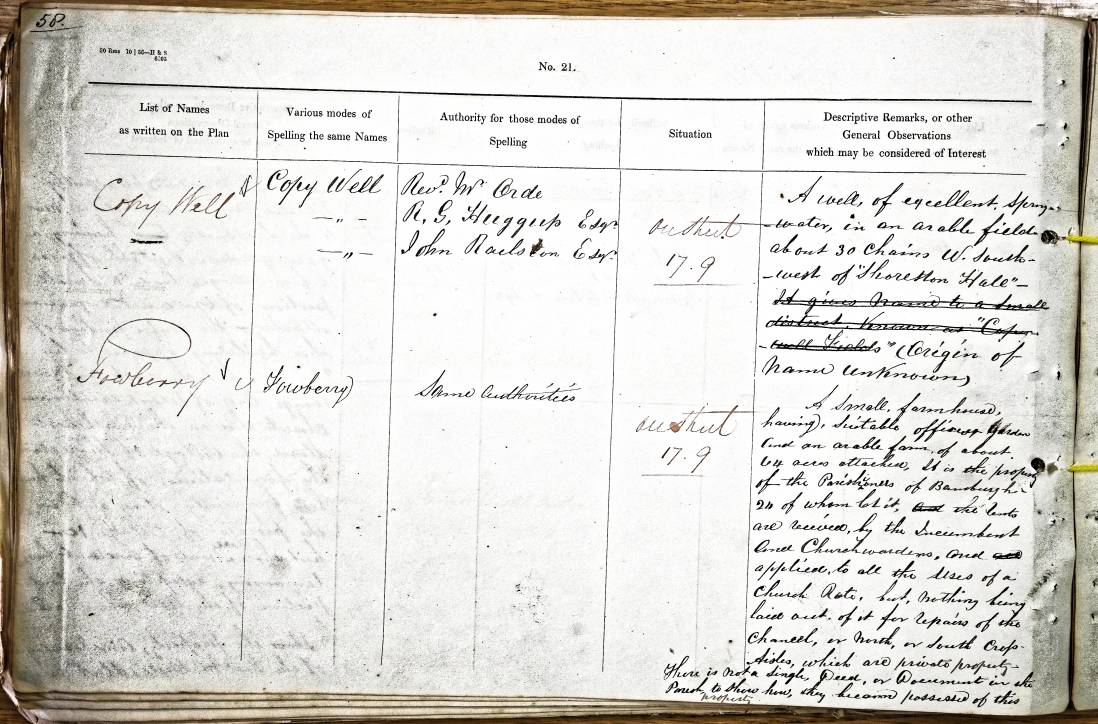 58.
20 Rms 10 | 55—H & S
No. 21.
List of Names
as written on the Plan
Various modes of
Spelling the same Names
Authority for those modes of
Spelling
Situation
Descriptive Remarks, or other
General Observations
which may be considered of Interest
Copy Well
Copy Well
—„—
—„—
Revd. Mr Orde
R. G. Huggup Esqr.
John Railston Esqr.
on sheet
17.9
A well, of excellent Spring
-water, in an arable field
about 30 Chains W. South-
-west of "Shoreston Hall"—
It gives Name to a Small
district, Known as "Copy
-well Fields" (Origin of
Name Unknown)
Fowberry
Fowberry
Same Authorities
on sheet
17.9
A Small, farmhouse,
having, Suitable offices Garden
and an arable farm, of about
64 acres attached, It is the property
of the Parishioners of Bamburgh
24 of whom let it, and the rents
are received, by the Incumbent
and Churchwardens, and are
applied, to all the Uses of a
Church Rate, but, Nothing being
laid out, of it for repairs of the
Chancel, or North, or South Cross
Aisles, which are private property
There is not a Single, Deed, or Document in the
Parish to Show how, they became possessed of this
property